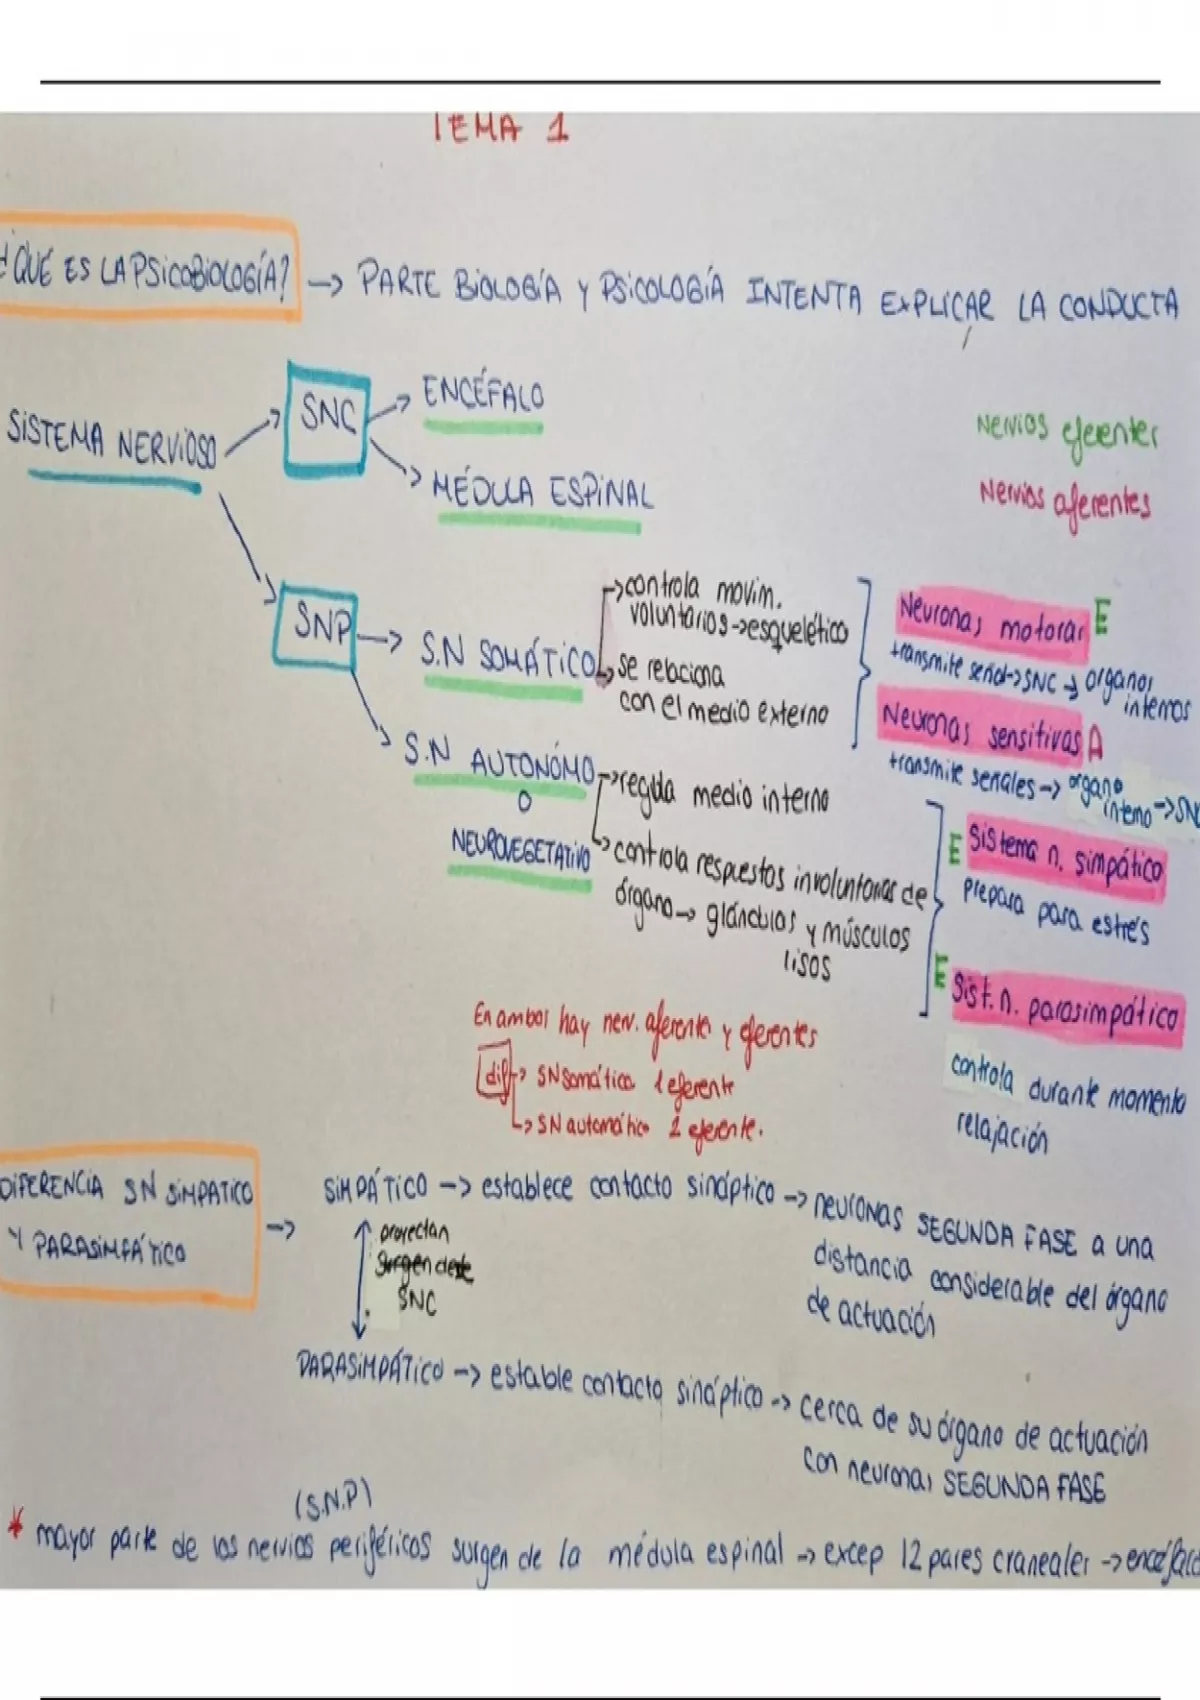 TEMA 1
¿QUÉ ES LA PSICOBIOLOGÍA? → PARTE BIOLOGÍA Y PSICOLOGÍA INTENTA EXPLICAR LA CONDUCTA
SISTEMA NERVIOSO
SNC
ENCÉFALO
MÉDULA ESPINAL
Nervios eferentes
Nervios aferentes
SNP
S.N SOMÁTICO
controla movim.
voluntarios → esquelético
se relaciona
con el medio externo
Neuronas motoras E
transmite señal → SNC → organos
internos
Neuronas sensitivas A
transmite señales → organo
interno → SNC
S.N AUTONÓMO
O
NEUROVEGETATIVO
regula medio interno
controla respuestas involuntarias de
órgano → glándulas y músculos
lisos
E Sistema n. simpático
prepara para estrés
E Sist. n. parasimpático
controla durante momento
relajación
En ambos hay nerv. aferente y eferentes
dif → SN somático 1 eferente
→ SN automático 2 eferente.
DIFERENCIA SN SIMPATICO
Y PARASIMPÁTICO
SIMPÁTICO → establece contacto sináptico → neuronas SEGUNDA FASE a una
distancia considerable del órgano
de actuación
proyectan
Surgen desde
SNC
PARASIMPÁTICO → estable contacto sináptico → cerca de su órgano de actuación
con neuronas SEGUNDA FASE
(S.N.P)
* mayor parte de los nervios periféricos surgen de la médula espinal → excep 12 pares craneales → encéfalo